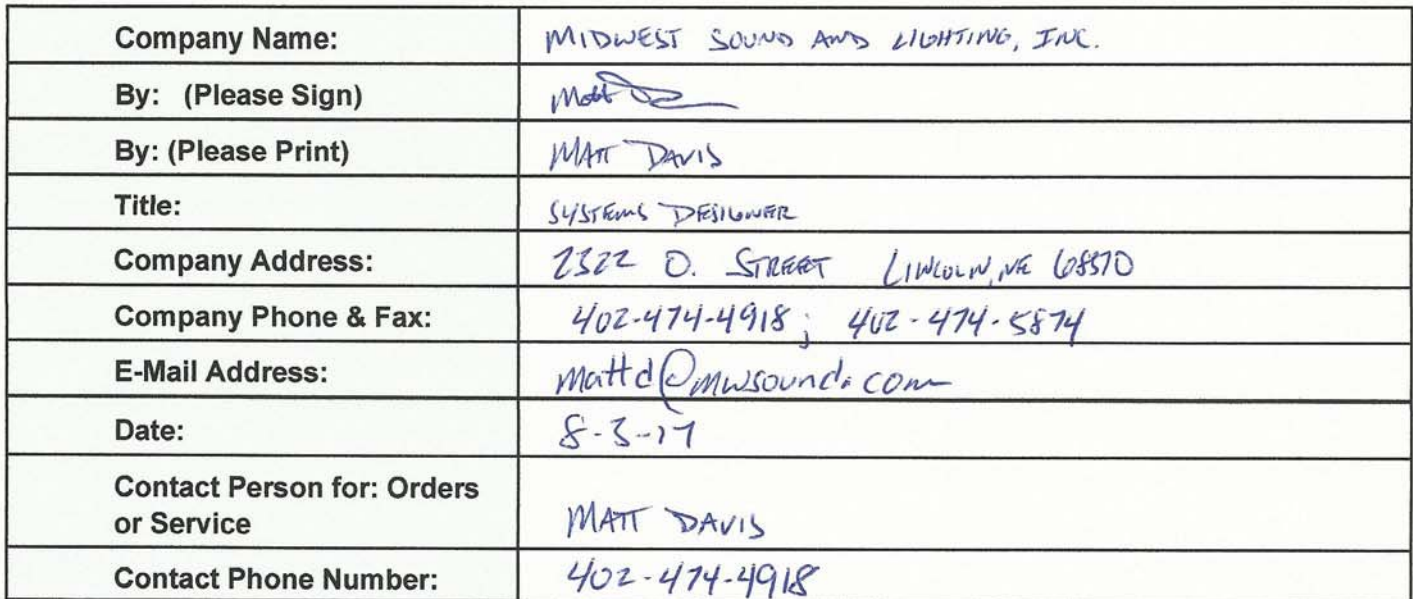 Company Name: MIDWEST SOUND AND LIGHTING, INC.
By: (Please Sign) Matt
By: (Please Print) MATT DAVIS
Title: SYSTEMS DESIGNER
Company Address: 2322 O. STREET LINCOLN, NE
Company Phone & Fax: 402-474-4918; 402-474-5874
E-Mail Address: mattd@mwsound.com
Date: 8-3-17
Contact Person for: Orders
or Service MATT DAVIS
Contact Phone Number: 402-474-4918